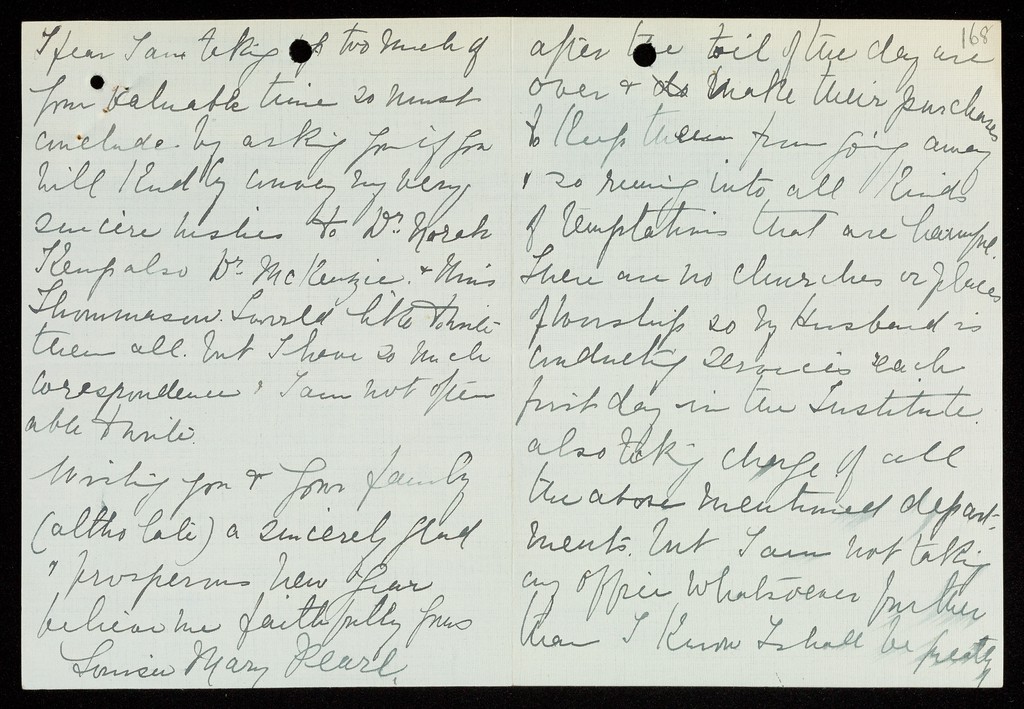 I fear I am taking up too much of
your valuable time so must
conclude by asking you if you
will kindly convey my very
sincere wishes to Dr. Norah
Kemp also Dr. McKenzie. & Miss
Thommason. I would like to write
them all. but I have so much
corespondence & I am not often
able to write.
Wishing you & your family
(altho late) a sincerely glad
& prosperous New Year
believe me faithfully yours
Louisa Mary Pearl.
168
after the toil of the day are
over & to make their purchases
to keep them from going away
& so runing into all kinds
of temptations that are harmful.
There are no churches or places
of worship so my Husband is
conducting services each
first day in the Institute.
also taking charge of all
the above mentioned depart-
ments. but I am not taking
any office whatsoever further
than I know I shall be greatly